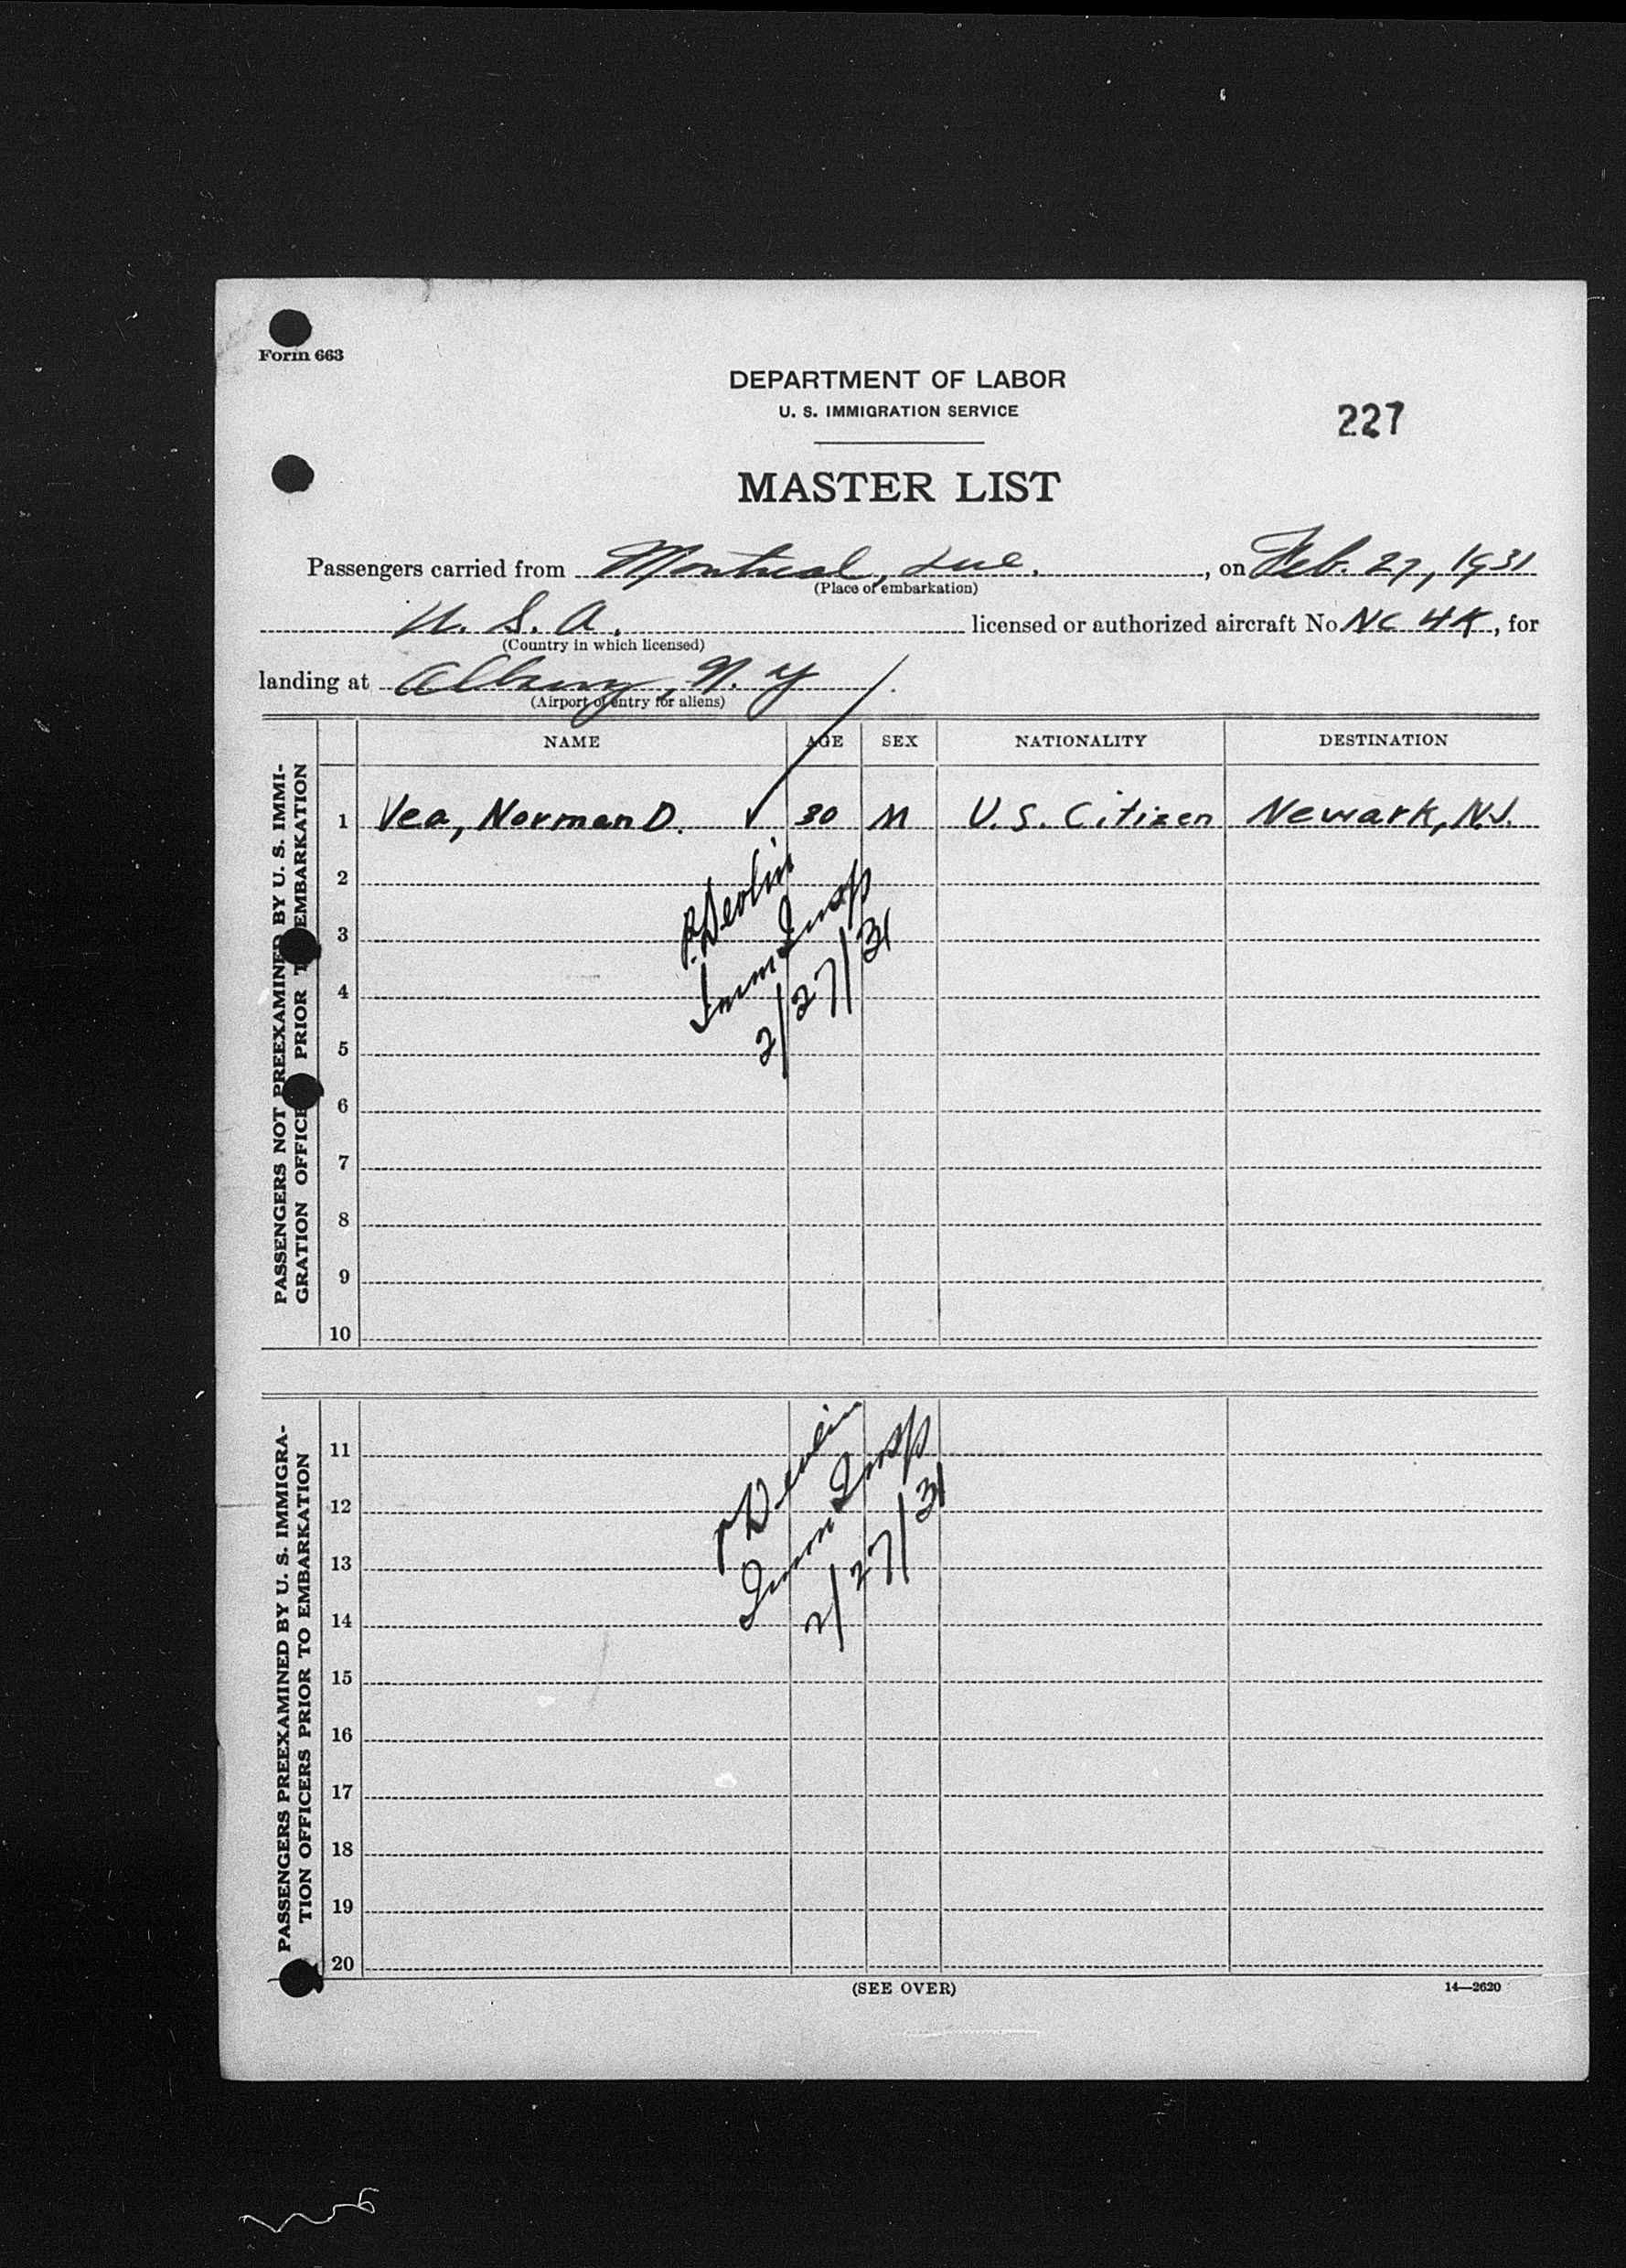 Form 663
DEPARTMENT OF LABOR
U. S. IMMIGRATION SERVICE
227
MASTER LIST
Passengers carried from Montreal, Que. , on Feb. 27, 1931
(Place of embarkation)
U. S. A. licensed or authorized aircraft No. NC 4K, for
(Country in which licensed)
landing at Albany, N. Y.
(Airport of entry for aliens)
NAME AGE SEX NATIONALITY DESTINATION
PASSENGERS NOT PREEXAMINED BY U. S. IMMI-
GRATION OFFICE PRIOR T EMBARKATION
1 Vea, Norman D. ✓ 30 M U.S. Citizen Newark, N.J.
2
3
4
5
6
7
8
9
10
P. Devlin
Imm Insp
2/27/31
PASSENGERS PREEXAMINED BY U. S. IMMIGRA-
TION OFFICERS PRIOR TO EMBARKATION
11
12
13
14
15
16
17
18
19
20
P Devlin
Imm Insp
2/27/31
(SEE OVER)
14—2620